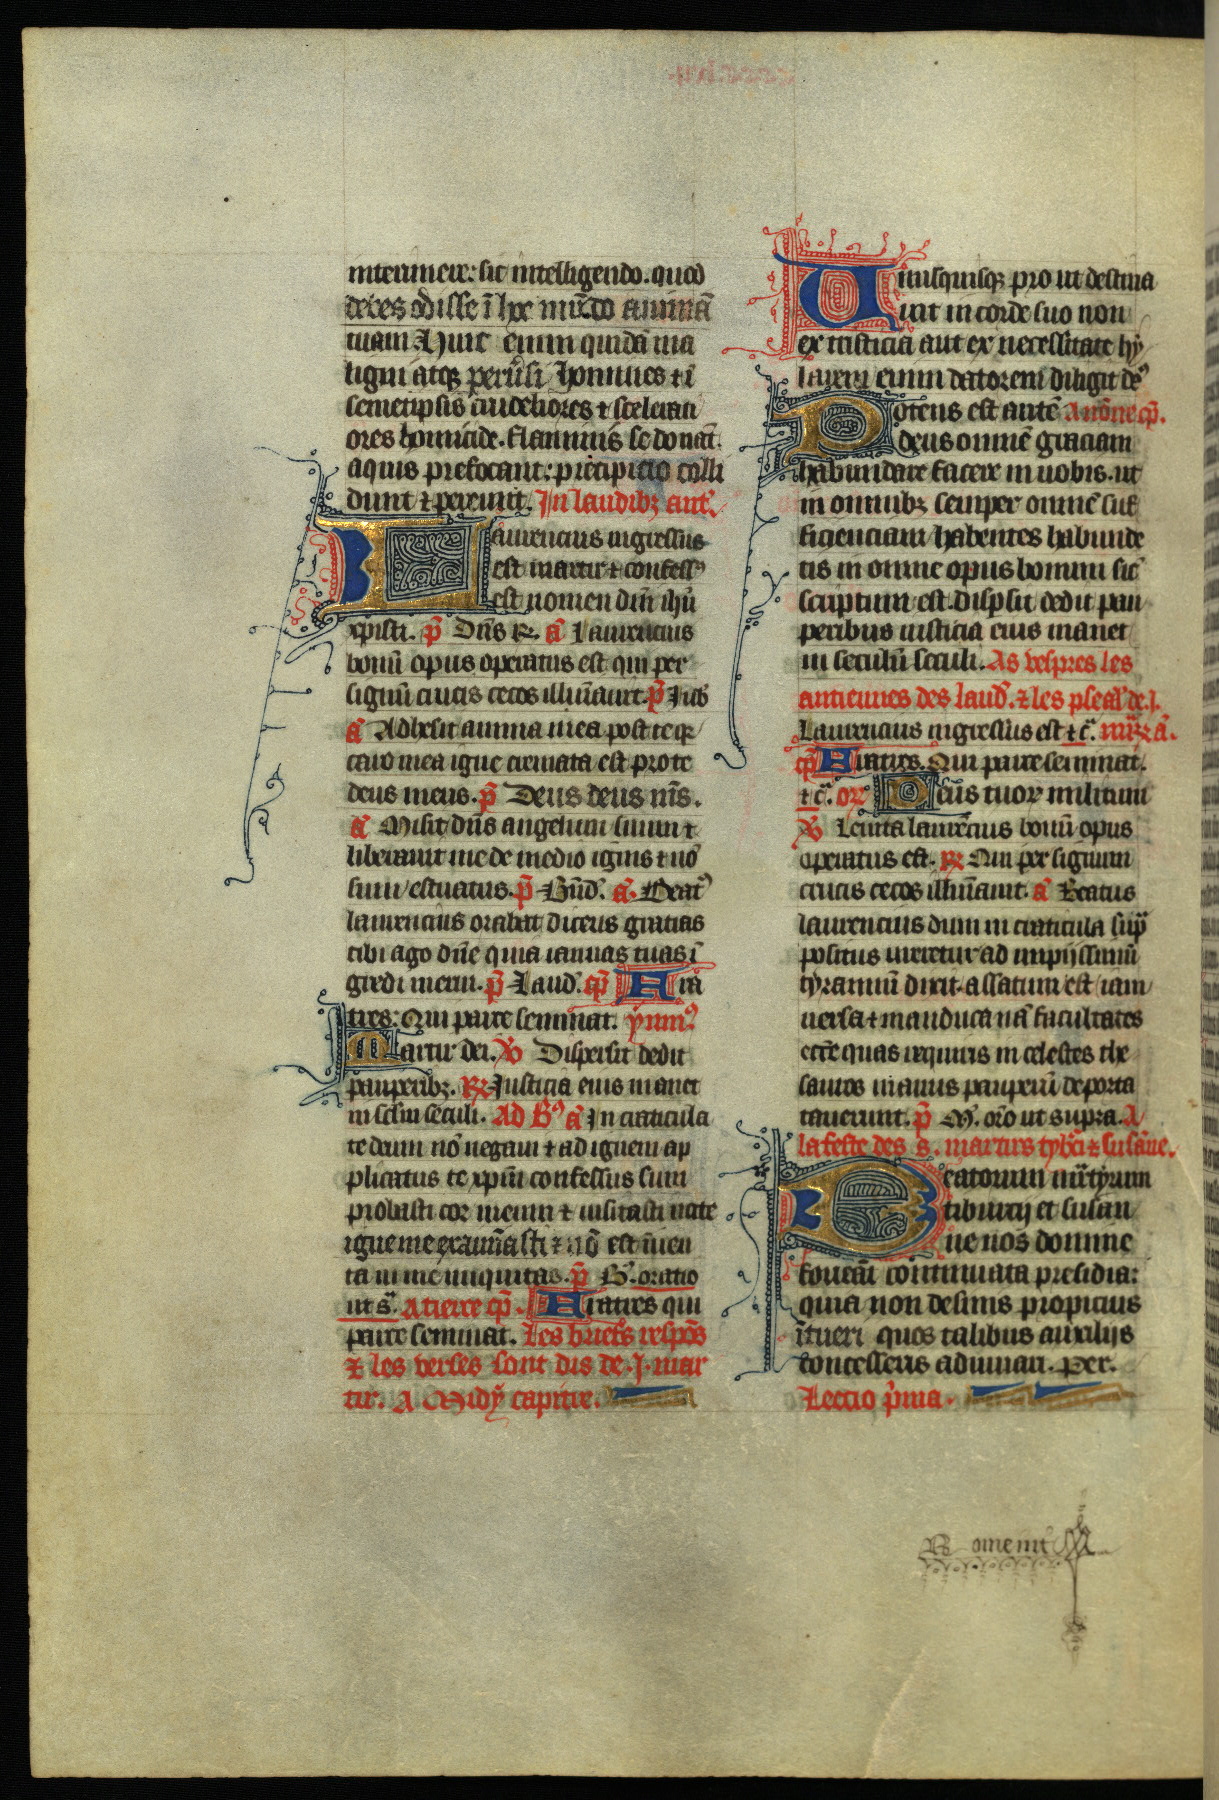 interimere: sic intelligendo. quod
debes odisse ī hoc mūdo animā
tuam Huic enim quidā ma
ligni atqȝ peruersi homines ⁊ ī
semetipsis crudeliores ⁊ scelerati
ores homicide. flāmmis se donāt.
aquis prefocant: precipicio colli
dunt ⁊ pereunt. In laudibȝ ant̄.
Laurencius ingressus
est martir ⁊ confess⁹
est nomen dn̄i ihū
xp̄isti. p̄ Dn̄s R. ā Laurencius
bonū opus operatus est qui per
signū crucis cecos illūinauit. p̄ Jub̄
ā Adhesit anima mea post te q̄
caro mea igne cremata est pro te
deus meus. p̄ Deus deus m̄s.
ā Misit dn̄s angelum suum ⁊
liberauit me de medio ignis ⁊ nō
sum estuatus. p̄ Bn̄d. ā. Beat⁹
laurencius orabat dicens gratias
tibi ago dn̄e quia ianuas tuas ī
gredi merui. p̄ Laud. cp̄ Fra
tres: Qui parce seminat. ymn⁹
Martir dei. ℣ Dispersit dedit
pauperibȝ. ℟ Justicia eius manet
in sc̄lm seculi. Ad B⁹ ā In craticula
te deum nō negaui ⁊ ad ignem ap
plicatus te xp̄m confessus sum
probasti cor meum ⁊ uisitasti nocte
igne me examinasti ⁊ nō est inuen
ta in me iniquitas. p̄ B. oratio
ut s. A tierce cp̄. Fratres qui
parce seminat. Les briefs respōs
⁊ les verses sont dis de .j. mar
tir. A Midy capitre.
Unusquisqȝ pro ut destina
uit in corde suo non
ex tristicia aut ex necessitate hy
larem enim datorem diligit de⁹
Potens est autē A nōne cp̄.
deus omnē graciam
habundare facere in uobis. ut
in omnibȝ semper omnē suf
ficienciam habentes habunde
tis in omne opus bonum sic̄
scriptum est. Dispsit dedit pau
peribus iusticia eius manet
in seculū seculi. As vespres les
antiennes des laud. ⁊ les pseal̄ de .j.
Laurencius ingressus est ⁊c̄.
cp̄ Fratres. Qui parce seminat.
⁊c̄. or̄e Deus tuor militum
℣ Leuita laurēcius bonū opus
operatus est. ℟ Qui per signum
crucis cecos illūinauit. ā Beatus
laurencius dum in craticula sup̄
positus ureretur ad impijssimū
tyrannū dixit. assatum est iam
uersa ⁊ manduca nā facultates
eccē quas requiris in celestes the
sauros manus pauperū deporta
tauerunt. p̄ M. or̄o ut supra. A
la feste des s. martirs tybᵉci ⁊ susāne.
Beatorum mr̄tyrum
tiburcij et susan
ne nos domine
foueāt continuata presidia:
quia non desinis propicius
ītueri quos talibus auxilijs
concesseris adiuuari. Per.
Lectio p̄ma.